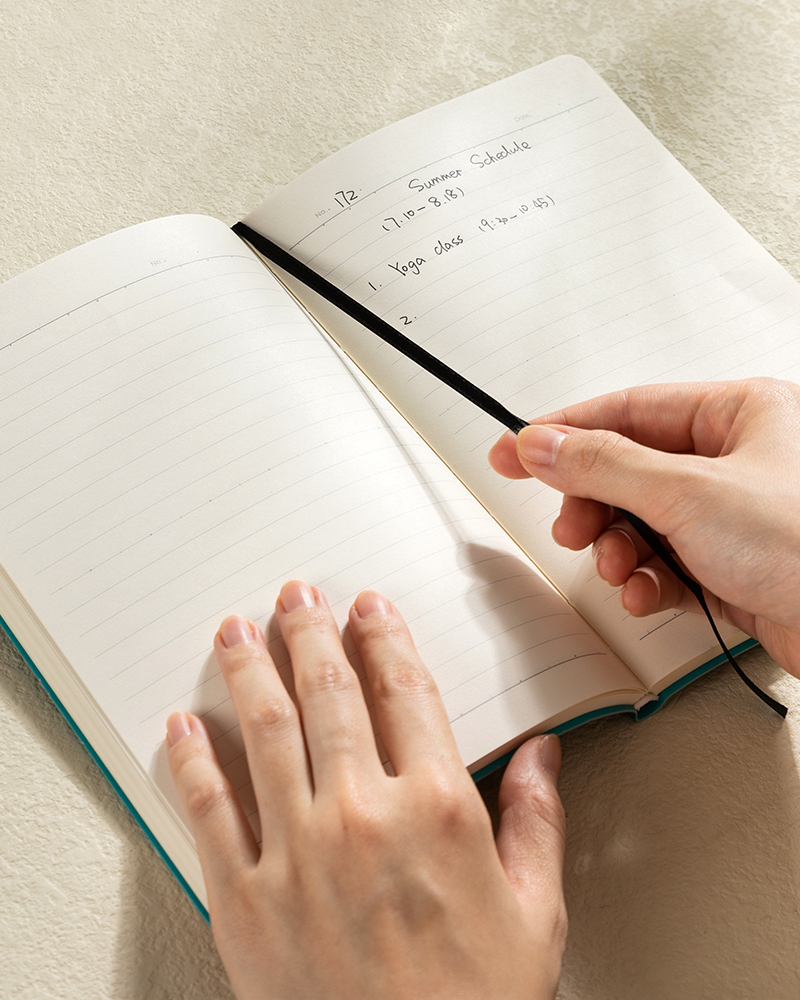 No. 172. Summer Schedule
(7.10 - 8.18)
1. Yoga class (9:30 - 10:45)
2.
No.